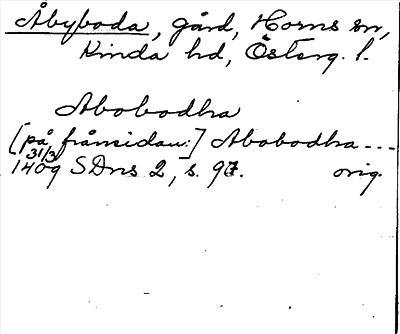 Åbyboda, gård, Horns sn,
Kinda hd, Österg. l.
Abobodha
[på frånsidan:] Abobodha ---
31/3
1409 SDns 2, s. 97. orig.